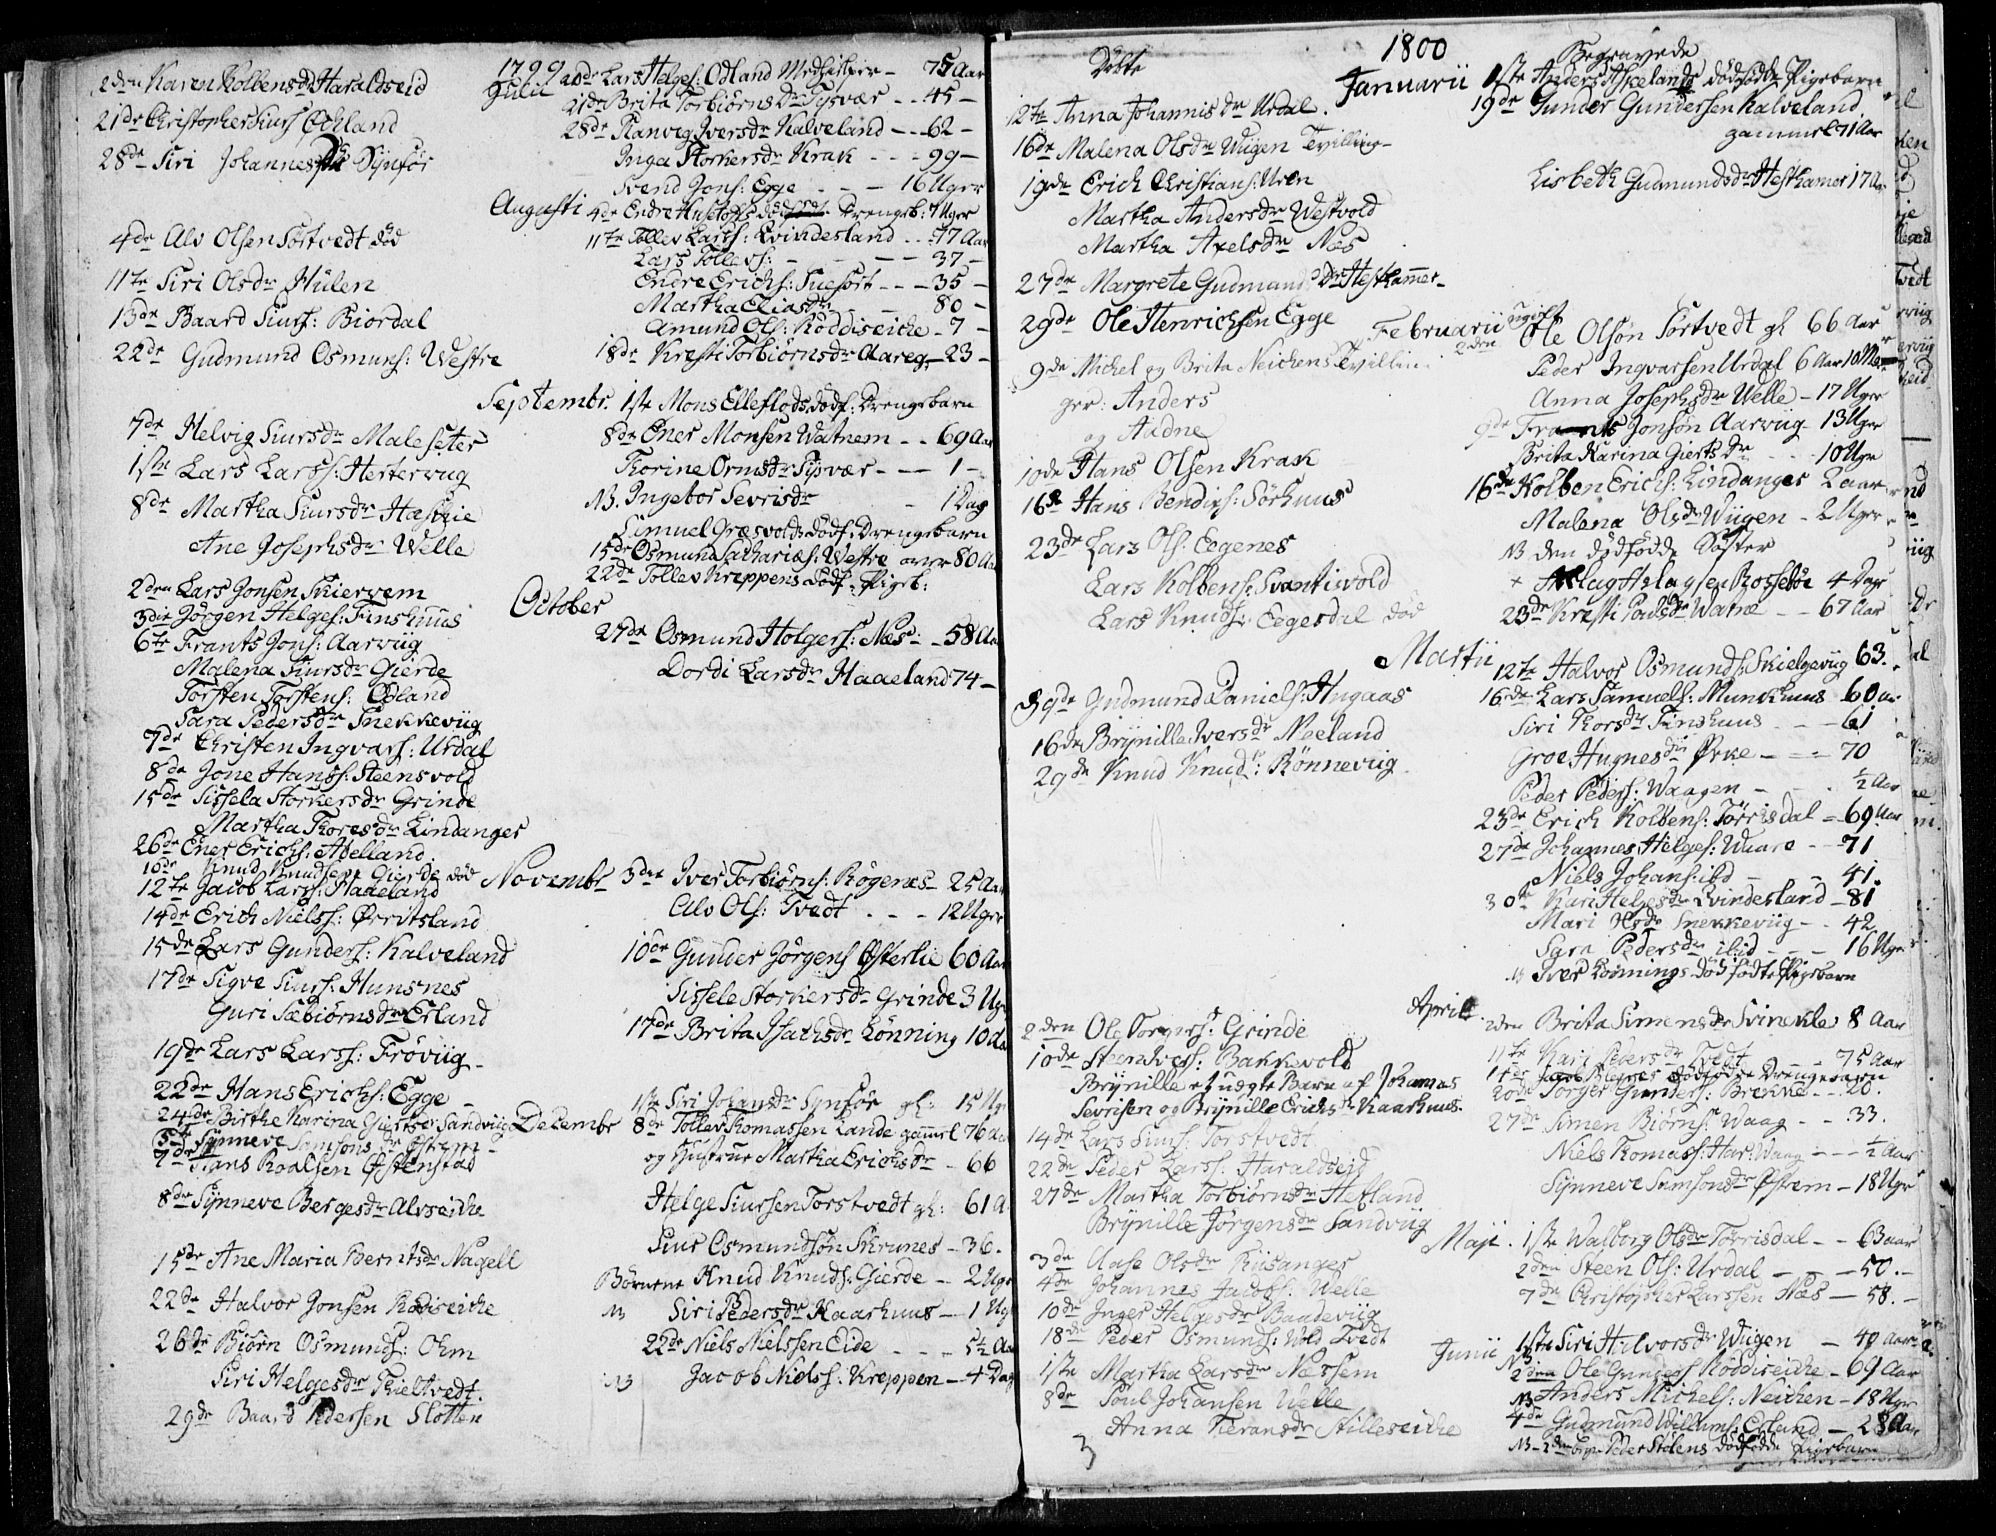 1799
Julii
2den Karen Kolbensdr Haraldseid
21de Christopher Siurs Odland
28de Siri Johannes Synfør
4de Alv Olsen Tørtvedt død
11te Siri Olsdr Hülen
13de Baard Siurs: Biordal
22de Gudmund Osmuns: Westre
7de Helvig Siursdr Maleseter
1ste Lars Larss: Hertervug
8de Martha Siursdr
Ane Josephsdr Welle
2den Lars Jonsen Skierrem
3die Jørgen Helges: Finshuus
6te Frants Jons: Aarviig
Malena Siursdr Gierde
Torsten Torstens: Odland
Sara Pedersdr Snekkeviig
7de Christen Ingvars: Urdal
8de Jone Hanss: Steensvold
15de Sissela Storkersdr Grinde
Martha Thoresdr Lindanger
26de Ener Erichs: Apelland
10de Knud Knudsen Gierde død
12te Jacob Larss: Haaeland
14de Erich Nielss: Øvritsland
15de Lars Gunders: Kalveland
17de Sigve Siurs: Hunsnes
Guri Sæbiørnsdr Erland
19de Lars Larss: Frøviig
22de Hans Erichs: Egge
24de Birthe Karina Giertsdr Sandviig
Synneve Samsonsdr Østrem
7de Hans Roalsen Østenstad
8de Synneve Bergesdr Alvseiche
15de Ane Maria Berntsdr Nagell
22de Halvor Jonsen Rødiseiche
26de Biørn Osmunds: Ohm
Siri Helgesdr Kieltvedt.
29de Baard Pedersen Slotten
20de Lars Helges: Odland Medhielper - 75 Aar
21de Brita Torbiørnsdr Tysvær - - 45 -
28de Ranveg Iversdr Kalveland - - 62 -
Inga Storkersdr Krak - - - 99 -
Svend Jons: Egge - - - 16 Uger
Augusti 4de Endre Drengeb: 7 Uger
11te Tollev Larss: Qvindesland - - 77 Aar
Lars Tollevs: - - - - 37 -
Endre Erichs: - - - 35 -
Martha Eliasdr - 80 -
Amund Ols: Røddiseiche - 7 -
18de Kresti Torbiørnsdr Aareg - 23 -
Septembr. 1ste Mons Elleflods dødf: Drengebarn
8de Ener Monsen Watnem - - 69 Aar
Thorine Ormsdr Tysvær - - - 1 -
NB. Ingebor Sevrisdr - 1 Dag
Simuel Græsvolds dødf. Drengebarn
15de Osmund Sachariæs: Westre over 80 Aar
22de Tollev Kreppens dødf. Pigeb:
October
27de Osmund Holgers: Næs: - 58 Aar
Dordi Larsdr Haaeland 74 -
Novembr 3die Iver Torbiørns: Røgenæs - 25 Aar
Alv Ols: Tvedt . - - 12 Uger
10de Gunder Jørgens Østerlie 60 Aar
Sissele Storkersdr Grinde 3 Uger
17de Brita Isachsdr Lønning 10 Aar
1ste Siri Johansdr Synfør gl: 15 Uger
Decembr 8de Tollev Thomassen Lande gammel 76 Aar
og Hustrue Martha Erichsdr - 66
Helge Siursen Torstvedt gl: 61 A
Siur Osmundsøn Skrunes - 36.
Børnene Knud Knuds: Gierde - 2 Uger
NB Siri Pedersdr Kaarhuus - 1 Uge
22de Niels Nielssen Eide - - - 5½ Aar
NB Jacob Nielss: Kreppen - 4 Dag
1800
Døbte
Januarii
12te Anna Johannisdr Urdal.
16de Malena Olsdr Wiigen Tvilling -
19de Erich Christians: Uren
Martha Andersdr Westvold
Martha Axelsdr Næs
27de Margrete Gudmundsdr Hesthamer -
29de Ole Henrichsen Egge
Februarii
9de Michel og Brita Neichens Tvillin
ger: Anders
og Aadne
10de Hans Olsen Krak
16de Hans Bendixs: Sørhuus
23de Lars Ols: Eegenes
Lars Kolbens: Svantivold
Lars Knuds: Eegesdal død
Martii
9de Gudmund Daniels: Hugaas
16de Brynille Iversdr Neeland
29de Knud Knuds: Rønneviig
Aprill
2den Ole Torgers: Grinde
10de Steen Ivers: Bakkevold
Brynille et uægte Barn af Johannes
Sevrisen og Brynille Erichsdr Kaarhuus.
14de Lars Siurs: Torstvedt
22de Peder Larss: Haraldseid
27de Martha Torbiørnsdr Hetland
Brynille Jørgensdr Sandviig
Maji
3de Aase Olsdr Riisanger
4de Johannes Jacobs: Welle
10de Inger Helgesdr Baadeviig
18de Peder Osmunds: Wold Tvedt
Junii
1ste Martha Larsdr Næssem
8de Poul Johansen Welle
Anna Tieransdr Hilleseiche
3
Begravede
1ste Anders Askelands dødfødde Pigebarn
19de Gunder Gundersen Kalveland
gammel 71 Aar
Lisbeth Gudmundsdr Hesthamer 17 Aar
2den ugift Ole Olsøn Tørtvedt gl 66 Aar
Peder Ingvarsen Urdal 6 Aar 10 M
Anna Josephsdr Welle - 17 Uger
9de Frants Jonsøn Aarviig 13 Uger
Brita Karina Giertsdr - - - 10 Uger
16de Kolben Erichs: Lindanger 2 aar
Malena Olsdr Wiigen - 2 Uger
NB den dødfødde Søster
+ Aslag Aslagsen Rossebøe 4 Dage
23de Kresti Poulsdr Watne - - 67 Aar
12te Halvor Osmunds: Skielgeviig 63.
16de Lars Samuels: Munkhuus - 60 aar
Siri Thorsdr Finshuus - - 61
Groe Hugnesdr Ørke - - - 70
Peder Peders: Waagen - - . ½ Aar
23de Erich Kolbens: Tørrisdal - 69 Aar
27de Johannes Helges: Waare - - 71
Niels Johans: ibd - - 41.
30te Kari Helgesdr Qvindesland - 81
Mari Snekkeviig - - 42
Sara Pedersdr ibid - - - 16 Uger
NB Iver Lønnings dødfødte Pigebarn
2den Brita Simensdr Svinekle 8 Aar
11te Kari Pedersdr Tvedt - - - 75 Aar
14de dødfødde Drengebarn
20de Torger Gunders: Brekke - - 20.
27de Simen Biørns: Waag - - 33.
Niels Thomass: Har: Waag - - - ½ Aar
Synneve Samsonsdr Østrem - 18 Uger
1ste Walborg Olsdr Tørrisdal - - 63 aar
2den Steen Ols: Urdal - - - 50. -
7de Christopher Larssen Næs - 58. -
1ste Siri Halvorsdr Wiigen - 40 Aar
2den Ole Gunders: Røddiseiche - 69 Aar
NB Anders Michels: Neichen - 18 Uger
4de Gudmund Willums: Erland - 28 Aar
NB - 2den Peder Stølens dødfødde Pigebarn